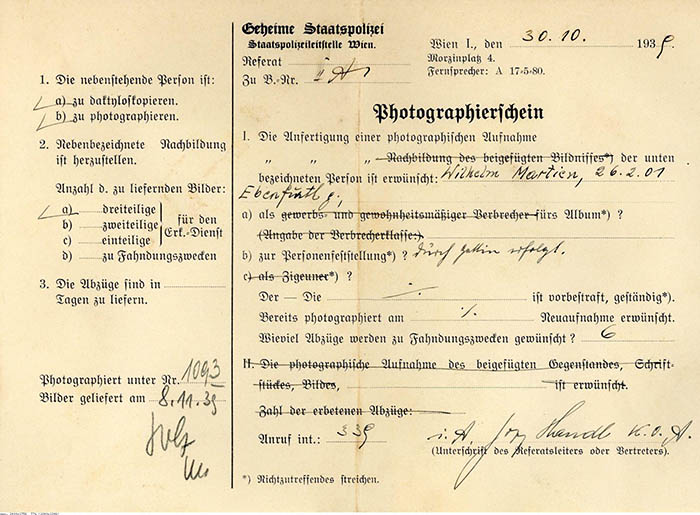 1. Die nebenstehende Person ist:
a) zu daktyloskopieren.
b) zu photographieren.
2. Nebenbezeichnete Nachbildung
ist herzustellen.
Anzahl d. zu liefernden Bilder:
a) dreiteilige
b) zweiteilige
c) einteilige
für den
Erk.-Dienst
d) zu Fahndungszwecken
3. Die Abzüge sind in
Tagen zu liefern.
Photographiert unter Nr. 1093
Bilder geliefert am 8.11.39
Geheime Staatspolizei
Staatspolizeileitstelle Wien.
Referat
Zu B.-Nr. II A
Wien I., den 30.10. 1939.
Morzinplatz 4.
Fernsprecher: A 17-5-80.
Photographierschein
I. Die Anfertigung einer photographischen Aufnahme
„ „ „ Nachbildung des beigefügten Bildnisses*) der unten
bezeichneten Person ist erwünscht: Wilhelm Martien, 26.2.01
a) als gewerbs- und gewohnheitsmäßiger Verbrecher fürs Album*) ?
(Angabe der Verbrecherklasse:)
b) zur Personenfeststellung*) ? durch Gattin erfolgt.
c) als Zigeuner*) ?
Der — Die ./. ist vorbestraft, geständig*).
Bereits photographiert am ./. Neuaufnahme erwünscht.
Wieviel Abzüge werden zu Fahndungszwecken gewünscht ? 6
II. Die photographische Aufnahme des beigefügten Gegenstandes, Schrift-
stückes, Bildes, ist erwünscht.
Zahl der erbetenen Abzüge:
Anruf int.: 339
i.A. Handl K.O.A.
(Unterschrift des Referatsleiters oder Vertreters).
*) Nichtzutreffendes streichen.